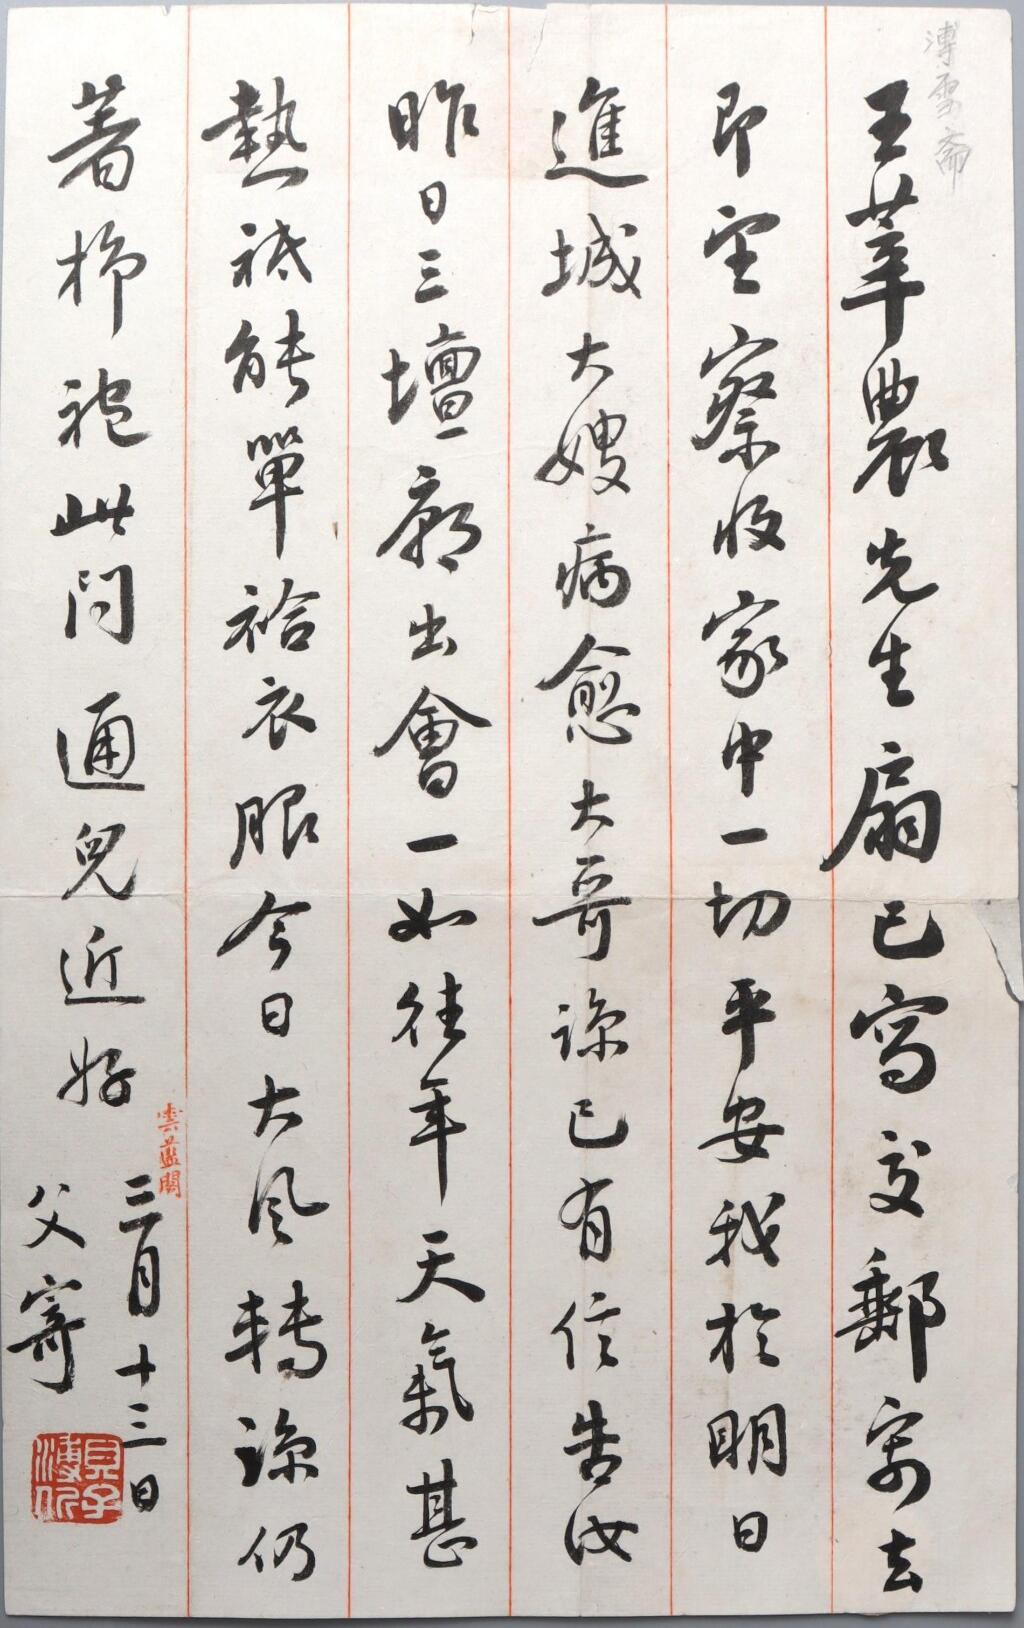 溥雪斋
王莘農先生扇已寫交郵寄去
即望察收家中一切平安我於明日
進城大嫂病愈大哥諒已有信告汝
昨日三壇廟出會一如往年天氣甚
熱祗能單袷衣服今日大風轉諒仍
著棉袍此問通兒近好
三月十三日
父寄
雲藍閣